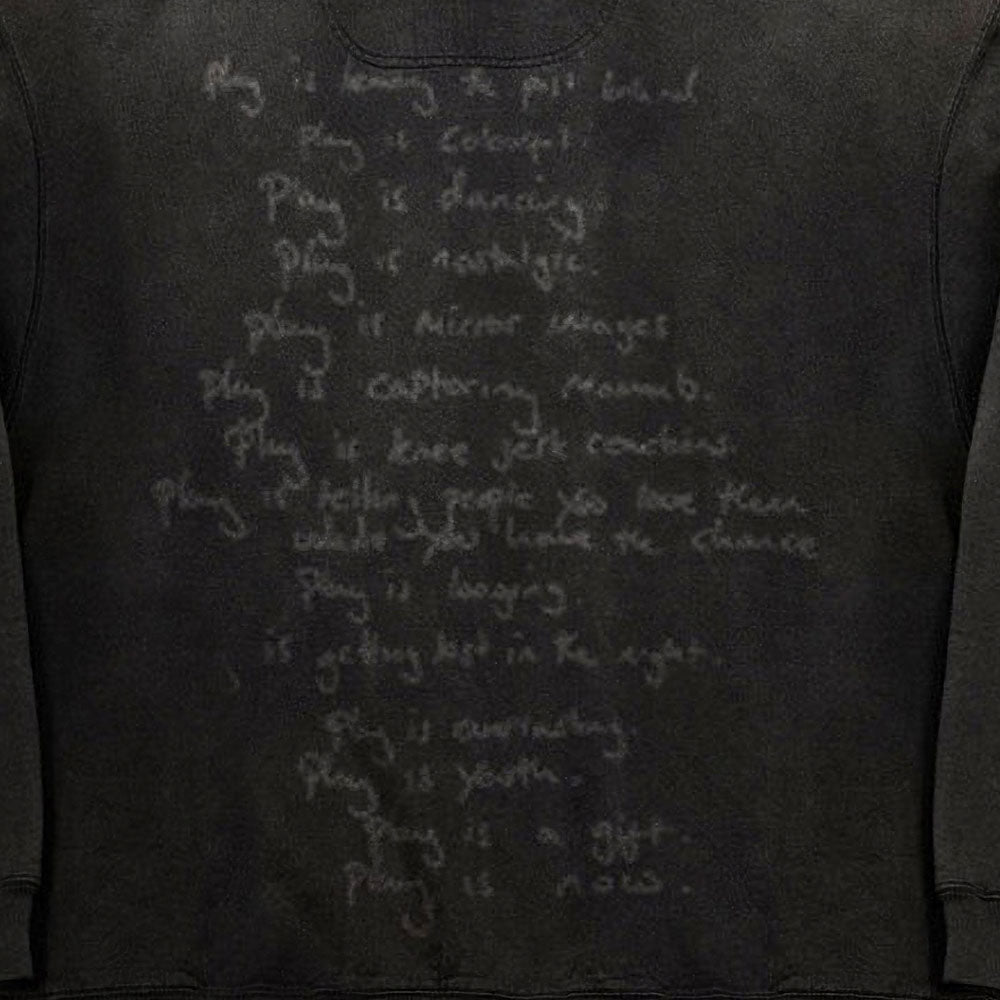 Play is leaving the past behind
Play is colorful.
Play is dancing.
Play is nostalgic.
Play is mirror images
Play is capturing
Play is knee jerk
Play is telling people you love them
you have the chance
Play is longing.
is getting lost in the night.
Play is
Play is youth.
Play is a gift.
Play is now.